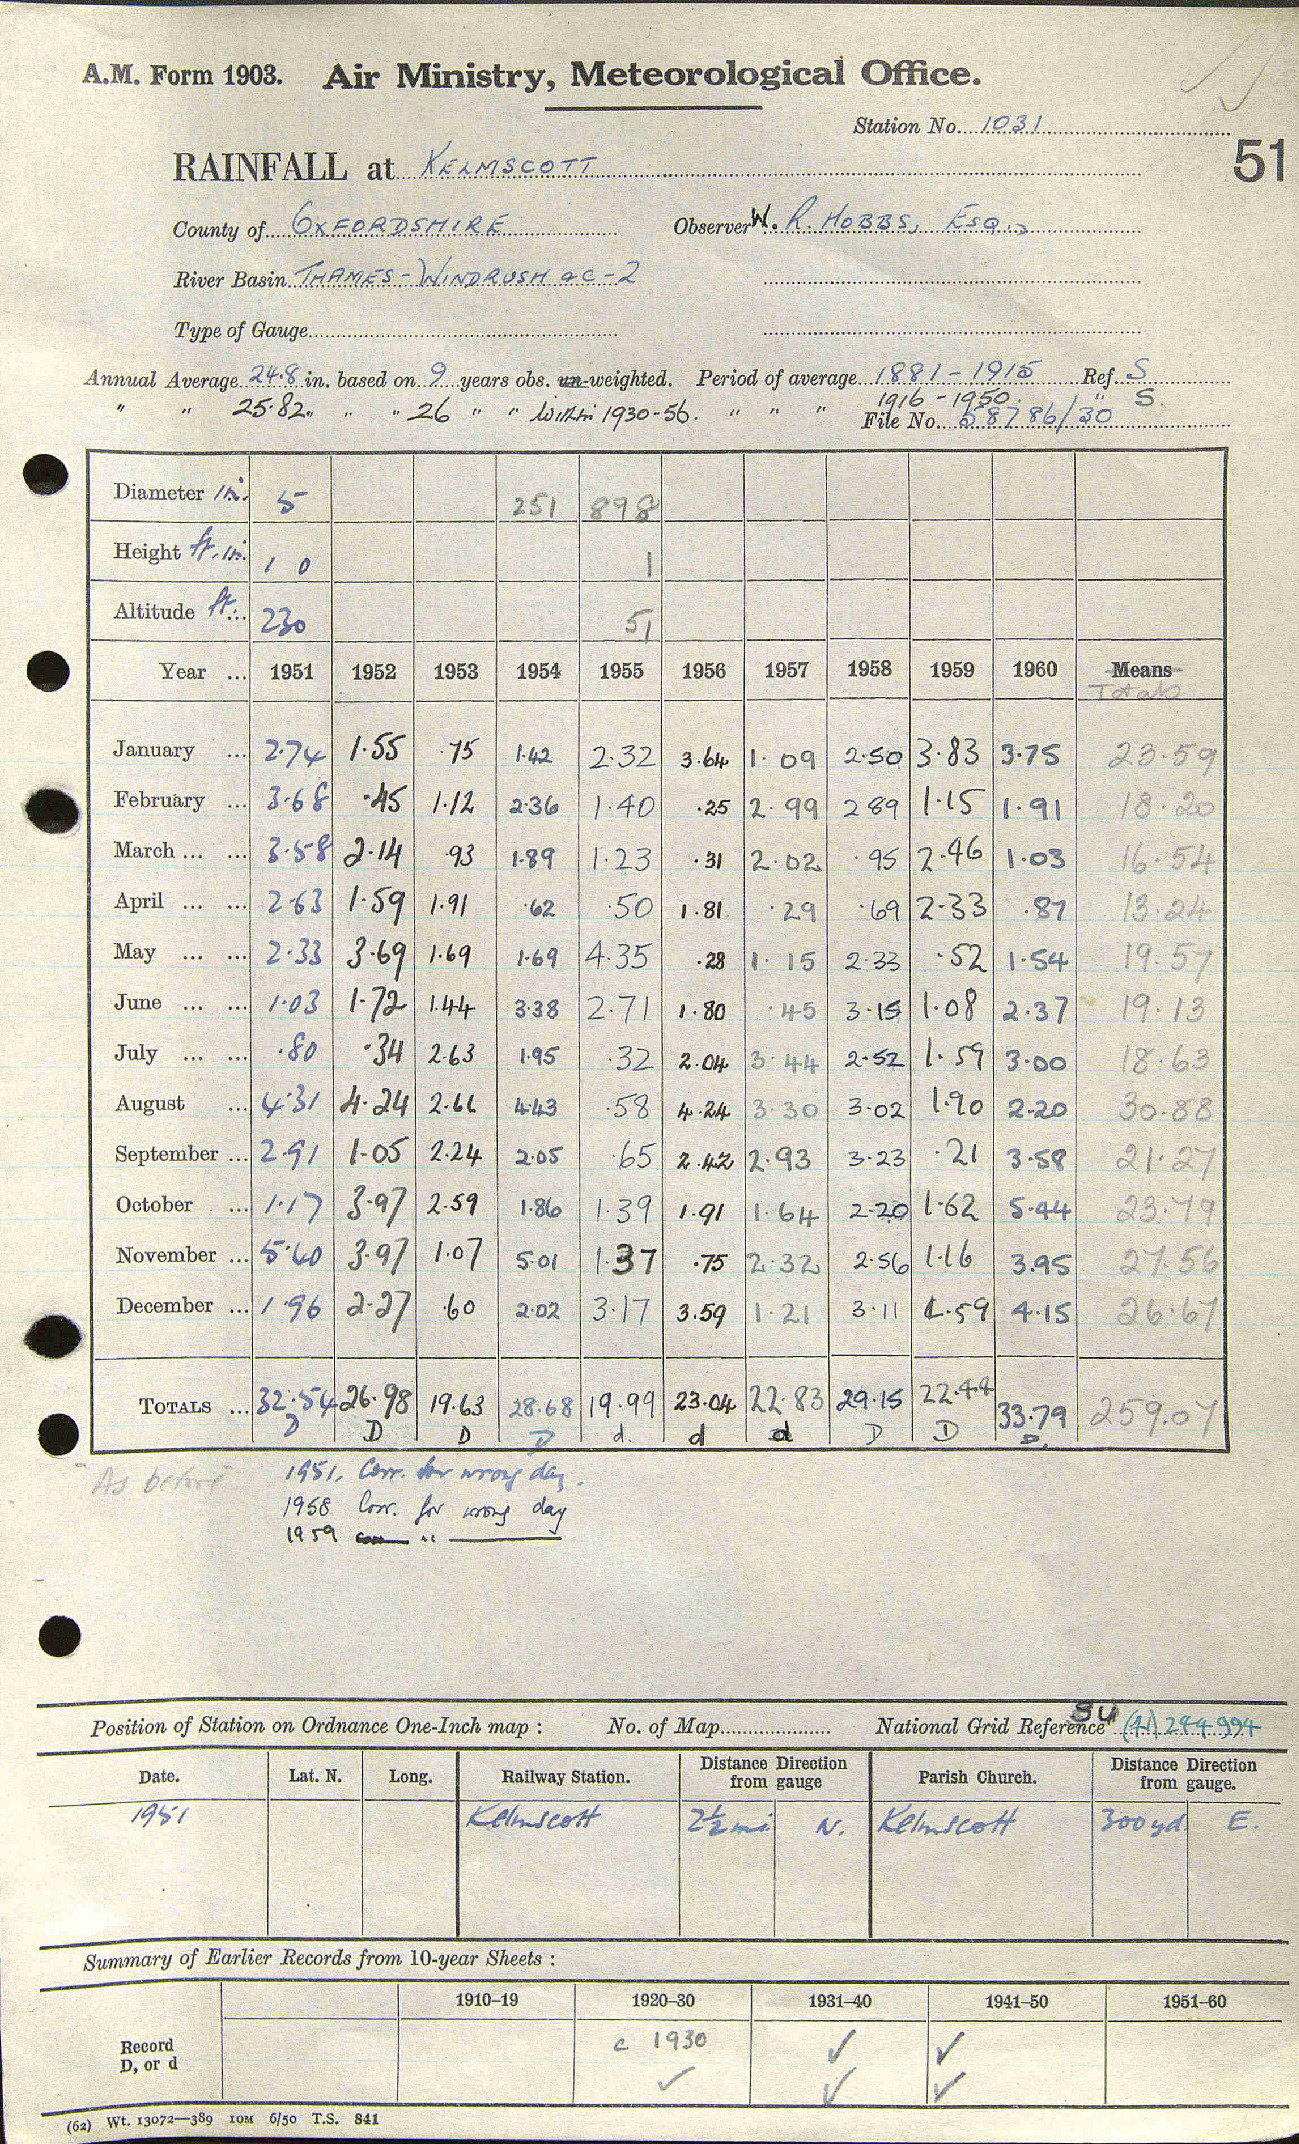 A.M. Form 1903. Air Ministry, Meteorological Office.
Station No. 1031
51
RAINFALL at KELMSCOTT
County of OXFORDSHIRE Observer W. R. HOBBS, ESQ.,
River Basin THAMES-WINDRUSH &C-2
Type of Gauge
Annual Average 24.8 in. based on 9 years obs. un-weighted. Period of average 1881-1915 Ref. S
" " 25.82 " " " 26 " " Within 1930-56. " " " 1916-1950. " S.
File No. 58786/30
Diameter in. 5 251 898
Height ft. in. 1 0 1
Altitude ft. ... 230 51
Year ... 1951 1952 1953 1954 1955 1956 1957 1958 1959 1960 Means
Totals
January ... 2.74 1.55 .75 1.42 2.32 3.64 1.09 2.50 3.83 3.75 23.59
February ... 3.68 .45 1.12 2.36 1.40 .25 2.99 2.89 1.15 1.91 18.20
March ... ... 3.58 2.14 .93 1.89 1.23 .31 2.02 .95 2.46 1.03 16.54
April ... ... 2.63 1.59 1.91 .62 .50 1.81 .29 .69 2.33 .87 13.24
May ... ... 2.33 3.69 1.69 1.69 4.35 .28 1.15 2.33 .52 1.54 19.57
June ... ... 1.03 1.72 1.44 3.38 2.71 1.80 .45 3.15 1.08 2.37 19.13
July ... ... .80 .34 2.63 1.95 .32 2.04 3.44 2.52 1.59 3.00 18.63
August ... 4.31 4.24 2.66 4.43 .58 4.24 3.30 3.02 1.90 2.20 30.88
September ... 2.91 1.05 2.24 2.05 .65 2.42 2.93 3.23 .21 3.58 21.27
October ... 1.17 3.97 2.59 1.86 1.39 1.91 1.64 2.20 1.62 5.44 23.79
November ... 5.40 3.97 1.07 5.01 1.37 .75 2.32 2.56 1.16 3.95 27.56
December ... 1.96 2.27 .60 2.02 3.17 3.59 1.21 3.11 4.59 4.15 26.67
TOTALS ... 32.54 26.98 19.63 28.68 19.99 23.04 22.83 29.15 22.44 33.79 259.07
D D D D d. d d D D D.
"As before" 1951. Corr. for wrong day.
1958 Corr. for wrong day
1959 "
Position of Station on Ordnance One-Inch map : No. of Map National Grid Reference SU (41) 244994
Date. Lat. N. Long. Railway Station. Distance Direction from gauge Parish Church. Distance Direction from gauge.
1951 Kelmscott 2½ mi N. Kelmscott 300 yd. E.
Summary of Earlier Records from 10-year Sheets :
1910–19 1920–30 1931–40 1941–50 1951–60
Record c 1930 ✓ ✓
D, or d ✓ ✓ ✓
(62) Wt. 13072—389 10M 6/50 T.S. 841